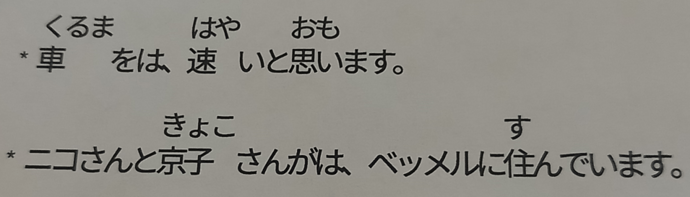 くるま はや おも
* 車 をは、速 いと思います。
きょこ す
* ニコさんと京子 さんがは、ベッメルに住んでいます。